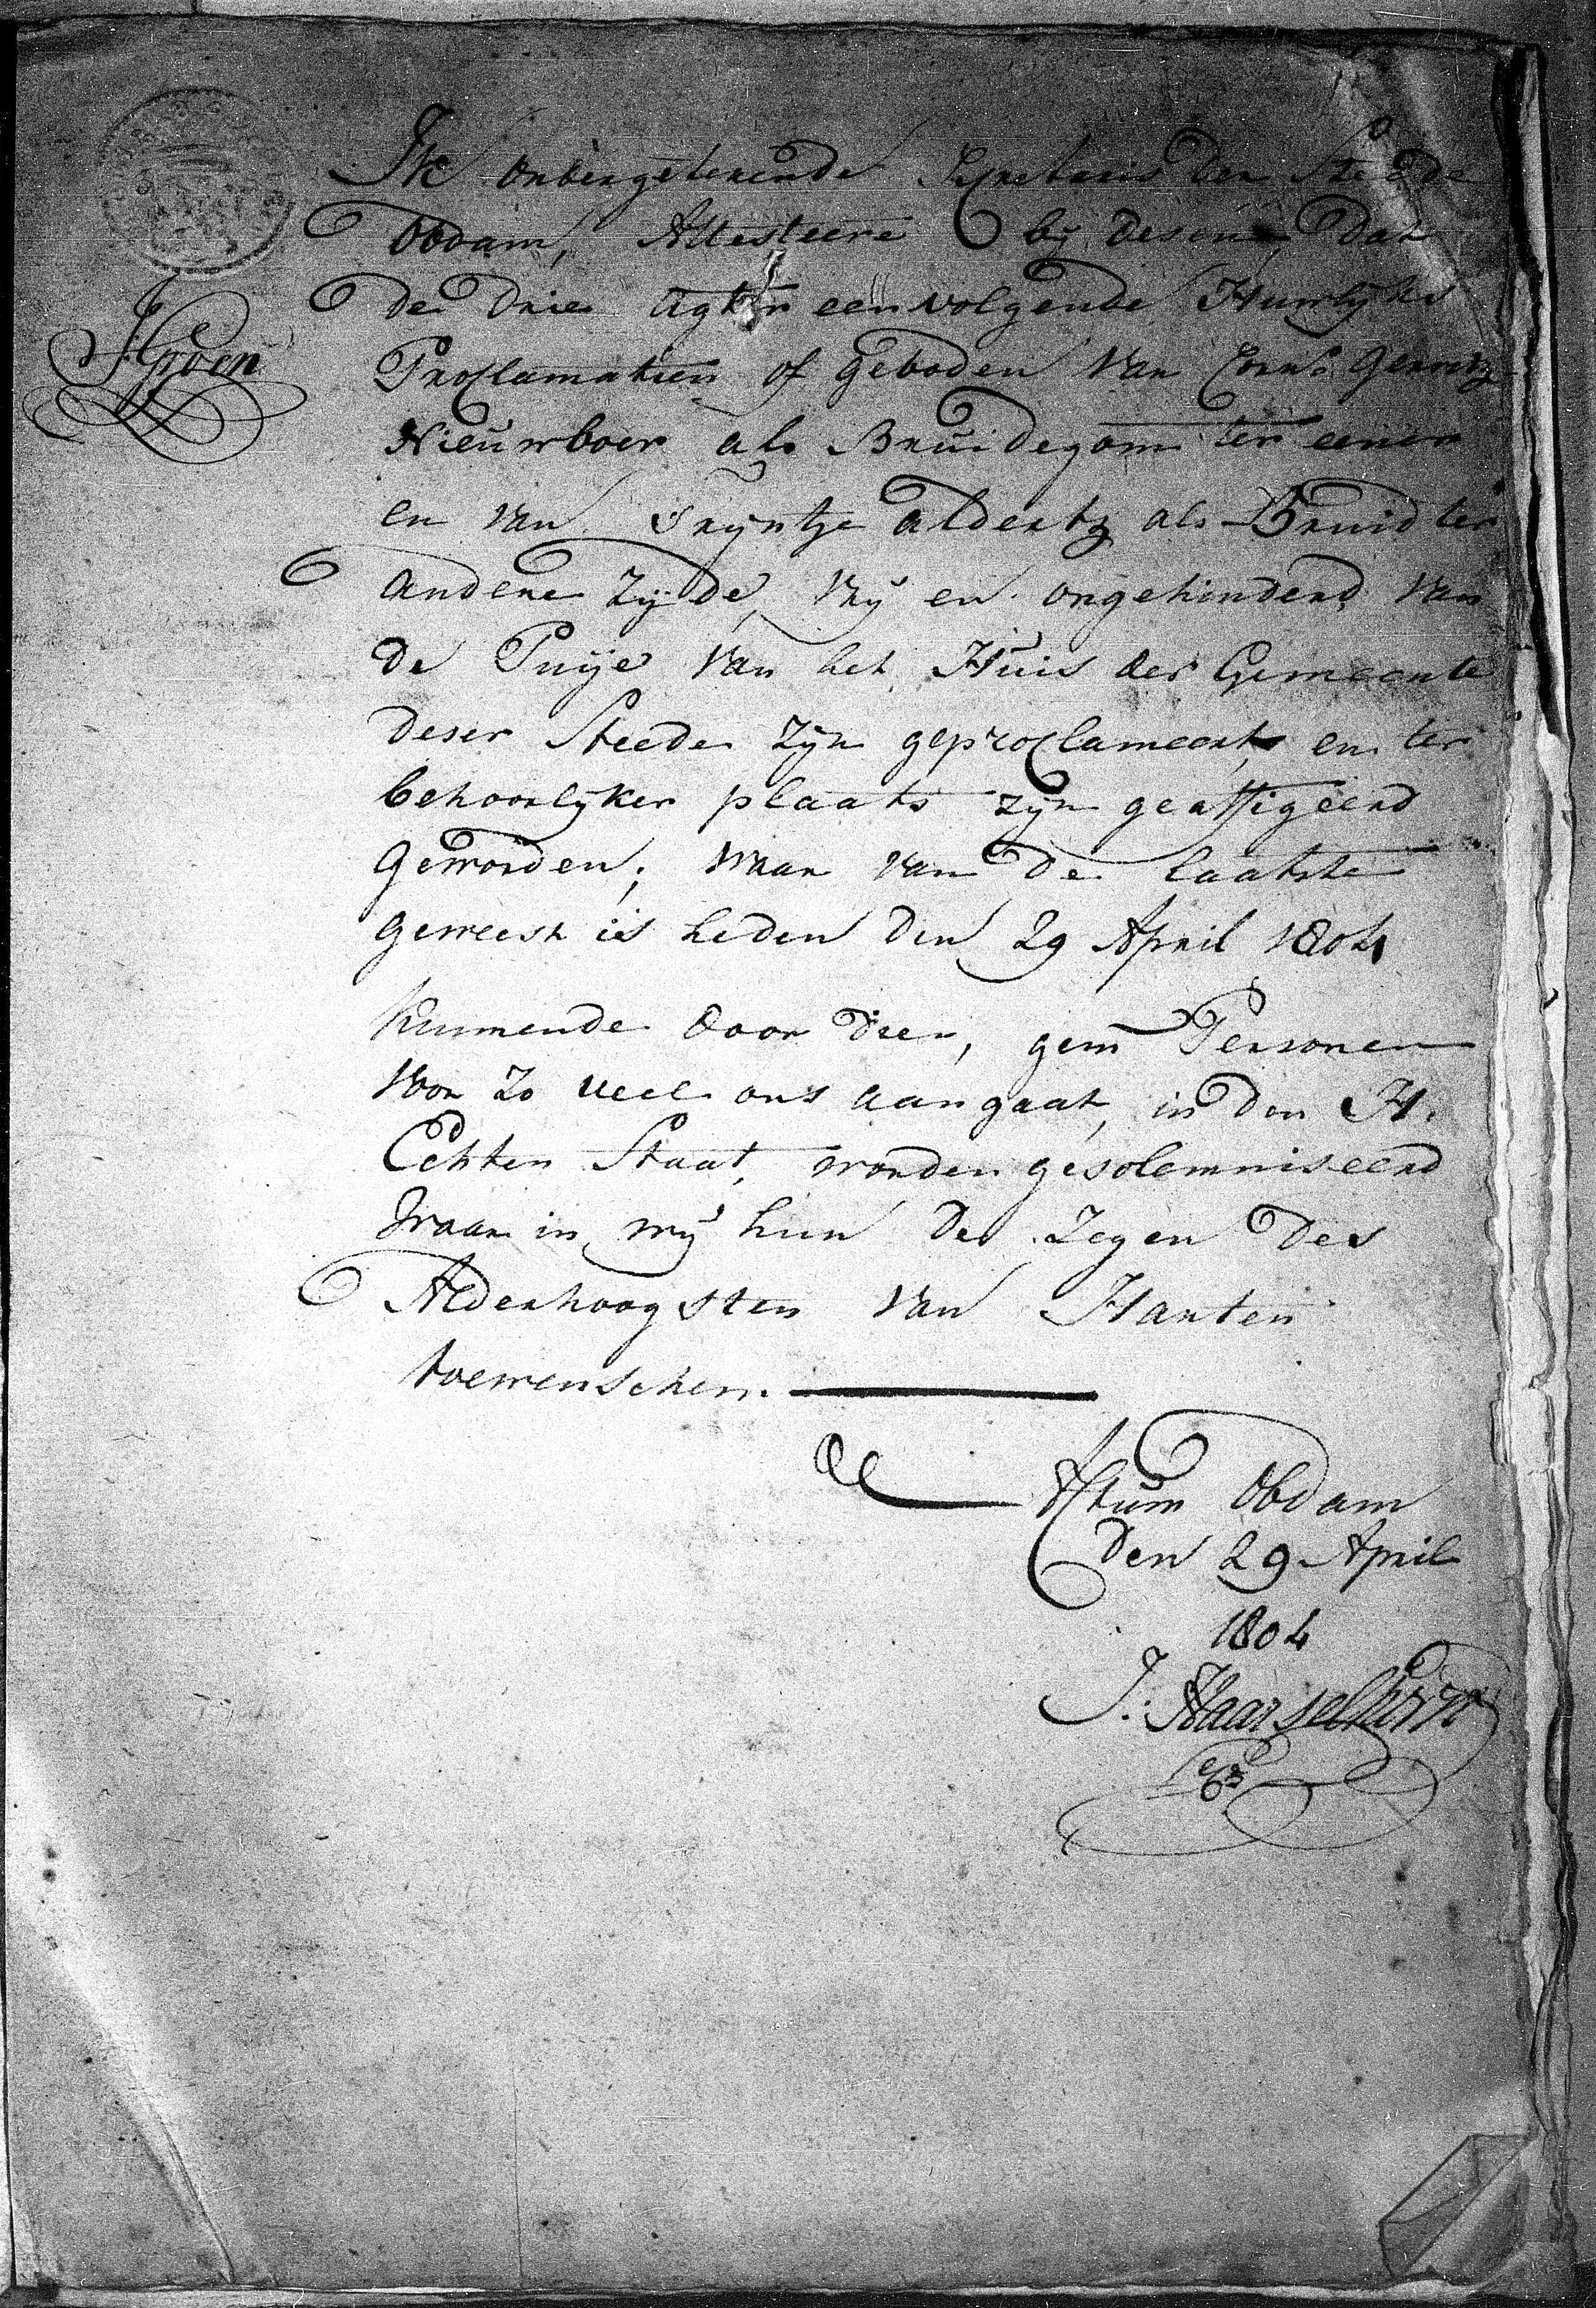 Ik ondergetekende Secretaris der Steede
Obdam, Attesteere bij desen, dat
de drie agter een volgende Huwlyks
Proclamatien of Geboden van Corns Gerritz
Nieuwboer als Bruidegom ter eener
en van Trijntje Aldertz als Bruid ter
J: Groen
andere zijde, vry en ongehinderd van
de Puije van het Huis der Gemeente
deser Steede zijn geproclameert, en ter
behoorlyker plaats zijn geaffigeerd
Geworden; waar van de laatste
geweest is heden den 29 April 1804
kunnende door dien, gem Personen
voor zo veel ons aangaat, in den H.
Echten Staat, worden gesolemniseerd
waar in wij hun de Zegen des
Alderhoogsten van Harten
toewenschen.
Actum Obdam
den 29 April
1804